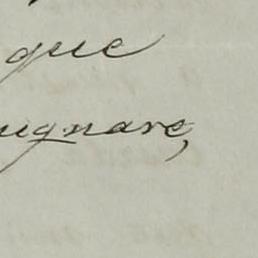 que
ugnare,